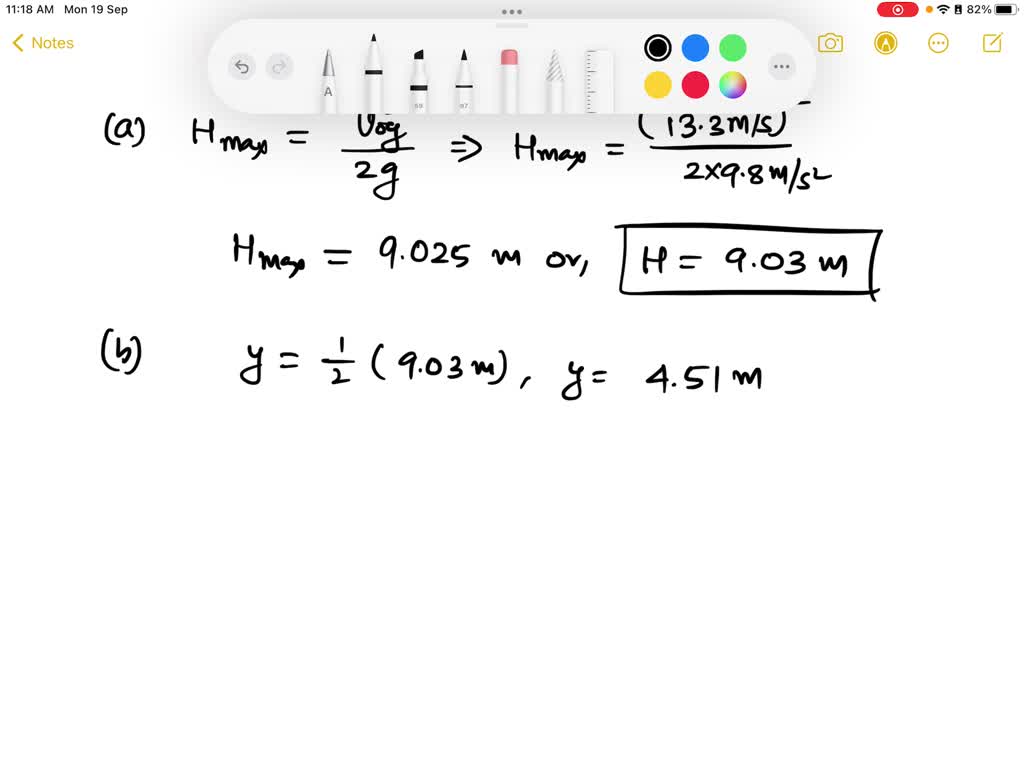 11:18 AM Mon 19 Sep 82%
Notes
A 69 97
(a) Hmax = V₀y / 2g ⇒ Hmax = (13.3 m/s) / 2×9.8 m/s²
Hmax = 9.025 m or, H = 9.03 m
(b) y = 1/2 (9.03 m), y = 4.51 m